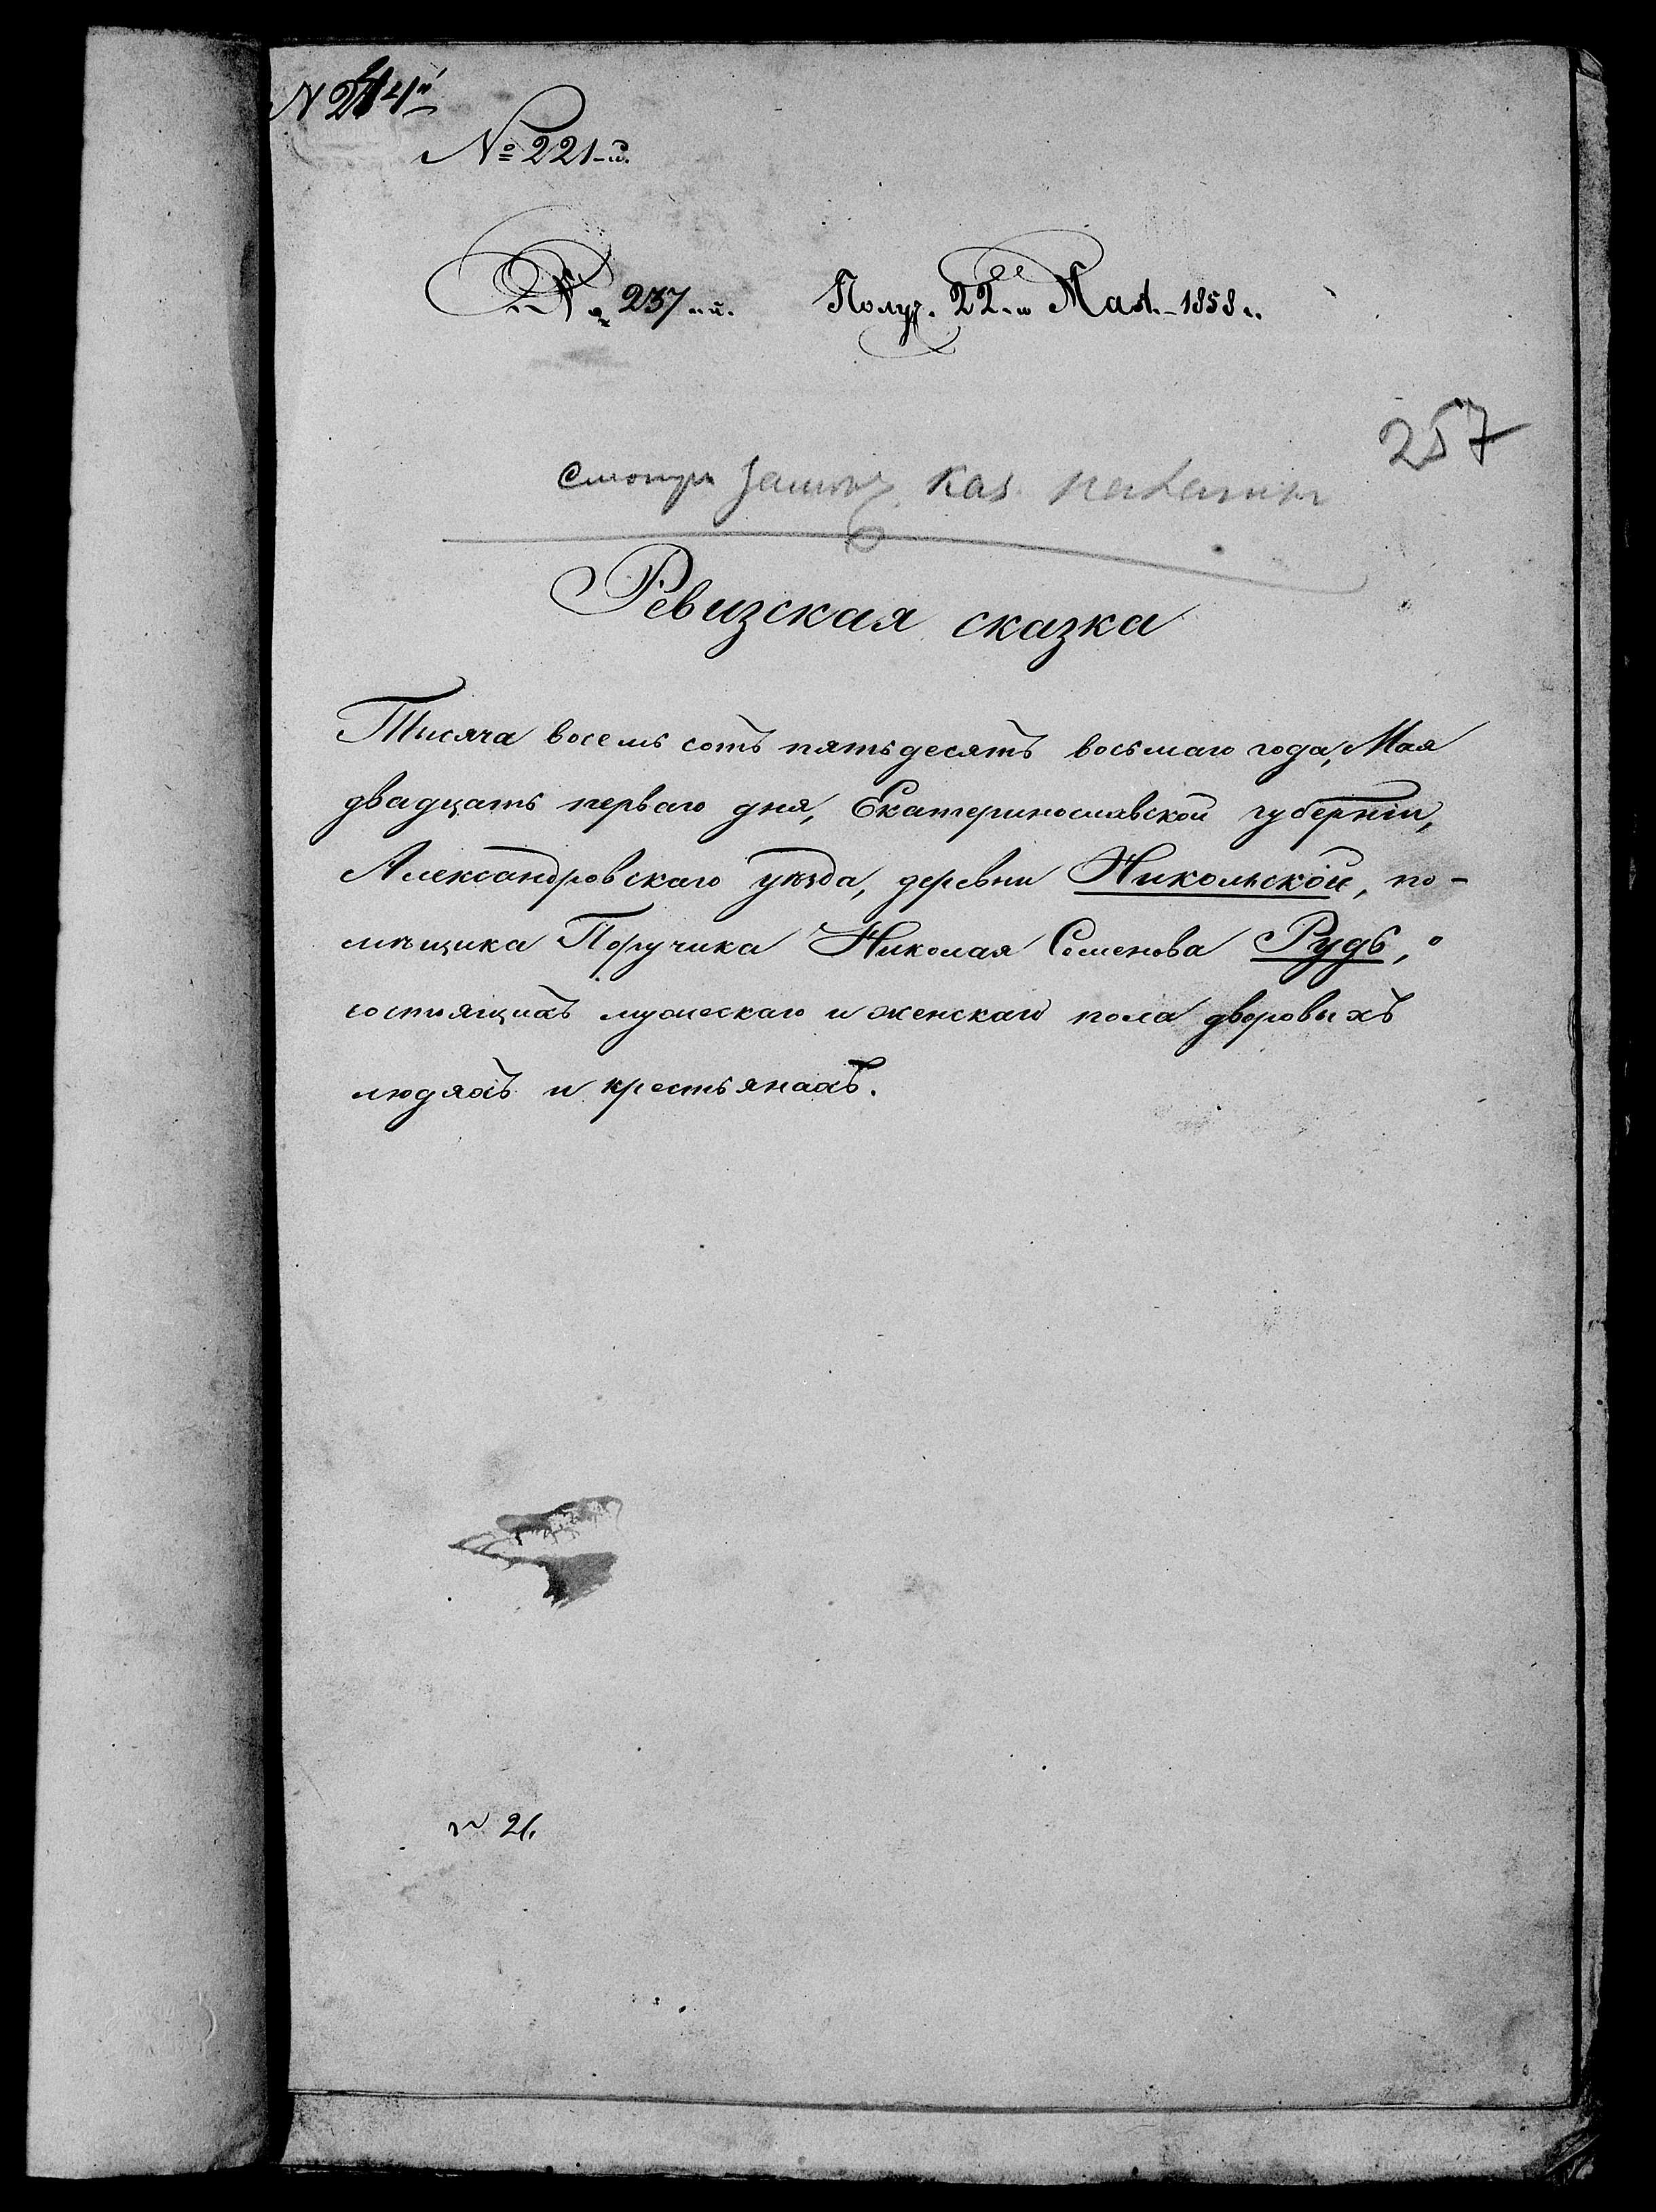 № 221-й.
№ 237-й. Получ. 22-го Мая 1858 г.
257
Смотри каз. палаты
Ревизская сказка
Тысяча восемь сотъ пятьдесятъ восьмаго года, Мая
двадцать перваго дня, Екатеринославской губерніи,
Александровскаго уѣзда, деревни Никольской, по-
мѣщика Поручика Николая Семенова Рудь, о
состоящихъ мужескаго и женскаго пола дворовыхъ
людяхъ и крестьянахъ.
№ 21.